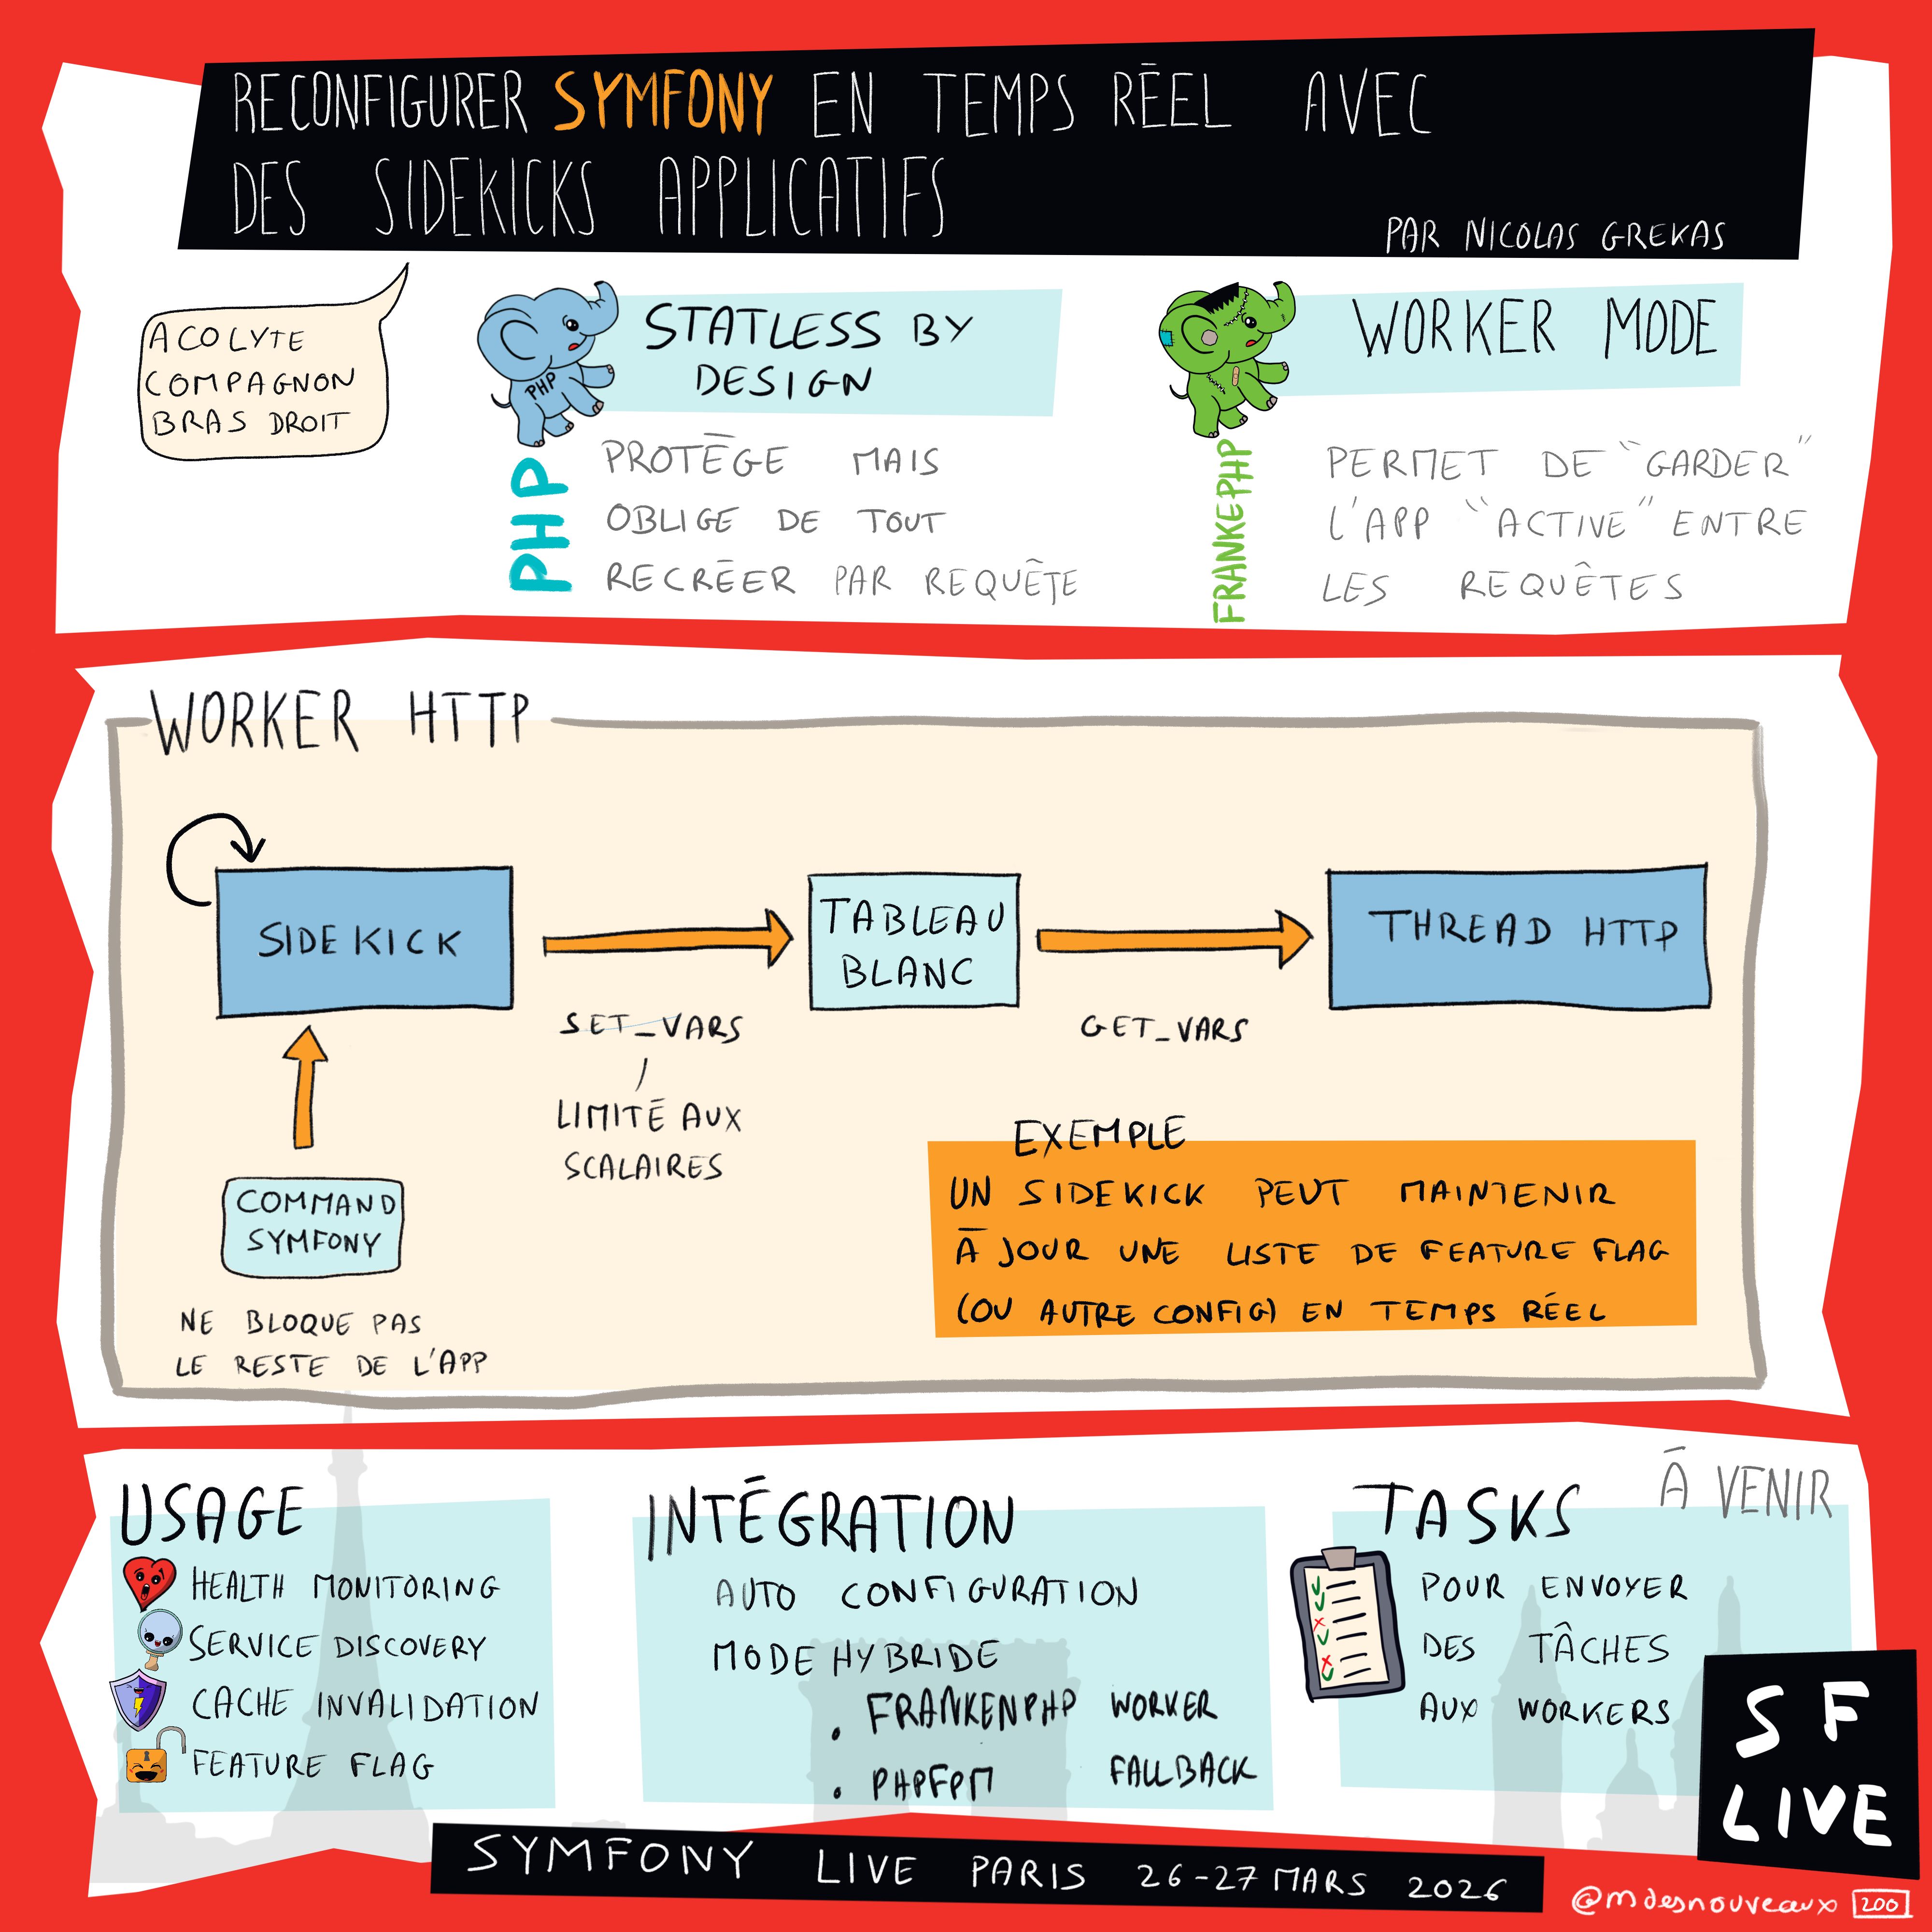 RECONFIGURER SYMFONY EN TEMPS RÉEL AVEC
DES SIDEKICKS APPLICATIFS
PAR NICOLAS GREKAS
ACOLYTE
COMPAGNON
BRAS DROIT
PHP
STATLESS BY
DESIGN
PHP
PROTÈGE MAIS
OBLIGE DE TOUT
RECRÉER PAR REQUÊTE
WORKER MODE
FRANKEPHP
PERMET DE "GARDER"
L'APP "ACTIVE" ENTRE
LES REQUÊTES
WORKER HTTP
SIDEKICK
TABLEAU
BLANC
THREAD HTTP
SET_VARS
GET_VARS
LIMITÉ AUX
SCALAIRES
COMMAND
SYMFONY
NE BLOQUE PAS
LE RESTE DE L'APP
EXEMPLE
UN SIDEKICK PEUT MAINTENIR
À JOUR UNE LISTE DE FEATURE FLAG
(OU AUTRE CONFIG) EN TEMPS RÉEL
USAGE
HEALTH MONITORING
SERVICE DISCOVERY
CACHE INVALIDATION
FEATURE FLAG
INTÉGRATION
AUTO CONFIGURATION
MODE HYBRIDE
. FRANKENPHP WORKER
. PHPFPM FALLBACK
TASKS À VENIR
POUR ENVOYER
DES TÂCHES
AUX WORKERS
SF
LIVE
SYMFONY LIVE PARIS 26-27 MARS 2026
@mdesnouveaux 200